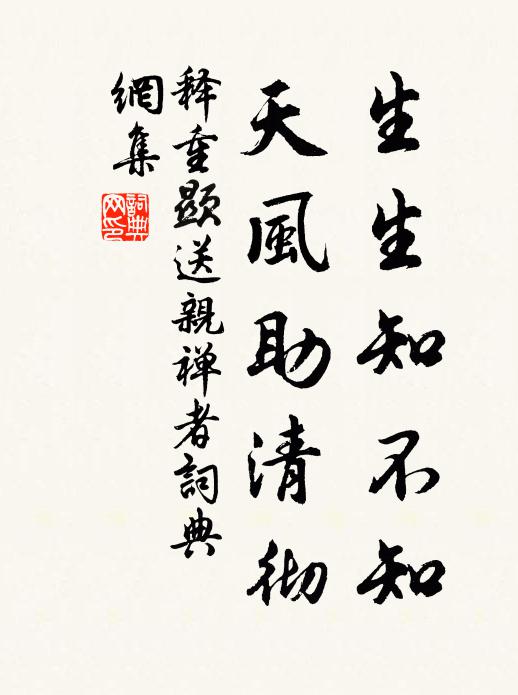 生生知不知
天風助清彻
释重顕送親禅者詞典
網集
詞典
网印